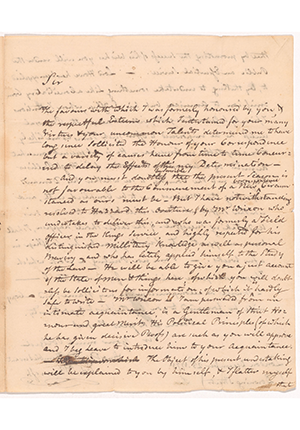 Sir
The favour with which I was formerly honoured by you &
the respectful Esteem which I entertained for your many
Virtues & your uncommon Talents determined me to have
long since sollicited the Honour of your Correspondence
but a variety of causes have from time to time
to delay the Effects of my Determination
And you must doubtless think that the present Season is
not favourable to the Commencement of a New Corres
 or ours must be — But I have notwithstanding
resolved to Hazard this Overture, by Mr Wilson who
undertakes to deliver this, and who was formerly a Field
officer in the Kings Service and highly respected for his
distinguished Military Knowledge as well as personal
Bravery and who has lately applied himself to the Study
of the Law — He will be able to give you a just account
of the State of some things here on which you will doubt
less sollicit him for information & of which it is hardly
safe to write — Mr Wilson as I am persuaded from an
intimate acquaintance is a Gentleman of strict Ho
nour and great Merit His Political Principles (of which
he has given decisive Proofs) are such as you will approve
and I beg leave to introduce him to your Acquaintance
 the Object of his present undertaking
will be explained to you by himself & I flatter myself
that